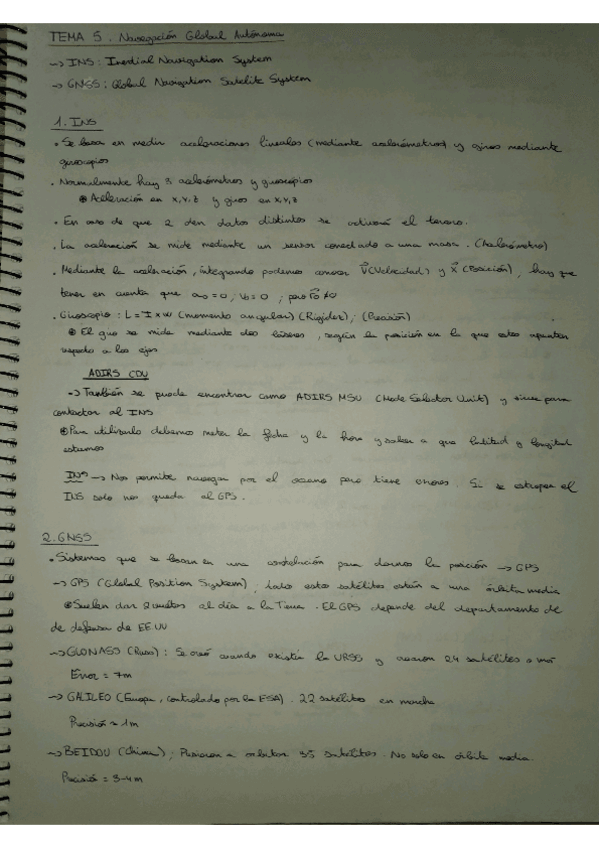 TEMA 5. Navegación Global Autónoma
-> INS: Inertial Navigation System
-> GNSS: Global Navigation Satelite System
1. INS
• Se basa en medir aceleraciones lineales (mediante acelerómetros) y giros mediante
giroscopios
• Normalmente hay 3 acelerómetros y giroscopios
⊛ Aceleración en x, y, z y giros en x, y, z
• En caso de que 2 den datos distintos se activará el tercero.
• La aceleración se mide mediante un sensor conectado a una masa. (Acelerómetro)
• Mediante la aceleración, integrando podemos conocer V⃗ (Velocidad) y X⃗ (Posición), hay que
tener en cuenta que a₀=0; v₀=0; pero r⃗₀≠0
• Giroscopio: L = I x w (momento angular) (Rigidez); (Precesión)
⊛ El giro se mide mediante dos láseres, según la posición en la que estos apunten
respecto a los ejes
ADIRS CDU
-> También se puede encontrar como ADIRS MSU (Mode Selector Unit) y sirve para
contactar al INS
⊛ Para utilizarlo debemos meter la fecha y la hora y saber a que latitud y longitud
estamos
INS -> Nos permite navegar por el oceano pero tiene errores. Si se estropea el
INS solo nos queda el GPS.
2. GNSS
• Sistemas que se basan en una constelación para darnos la posición -> GPS
-> GPS (Global Position System), todos estos satélites están a una órbita media
⊛ Suelen dar 2 vueltas al día a la Tierra. El GPS depende del departamento de
de defensa de EEUU
-> GLONASS (Rusia): Se creó cuando existía la URSS y crearon 24 satélites o más
Error = 7m
-> GALILEO (Europa, controlado por la ESA). 22 satélites en marcha
Precisión = 1m
-> BEIDOU (China); Pusieron a orbitar 35 satélites. No solo en órbita media.
Precisión = 3-4m